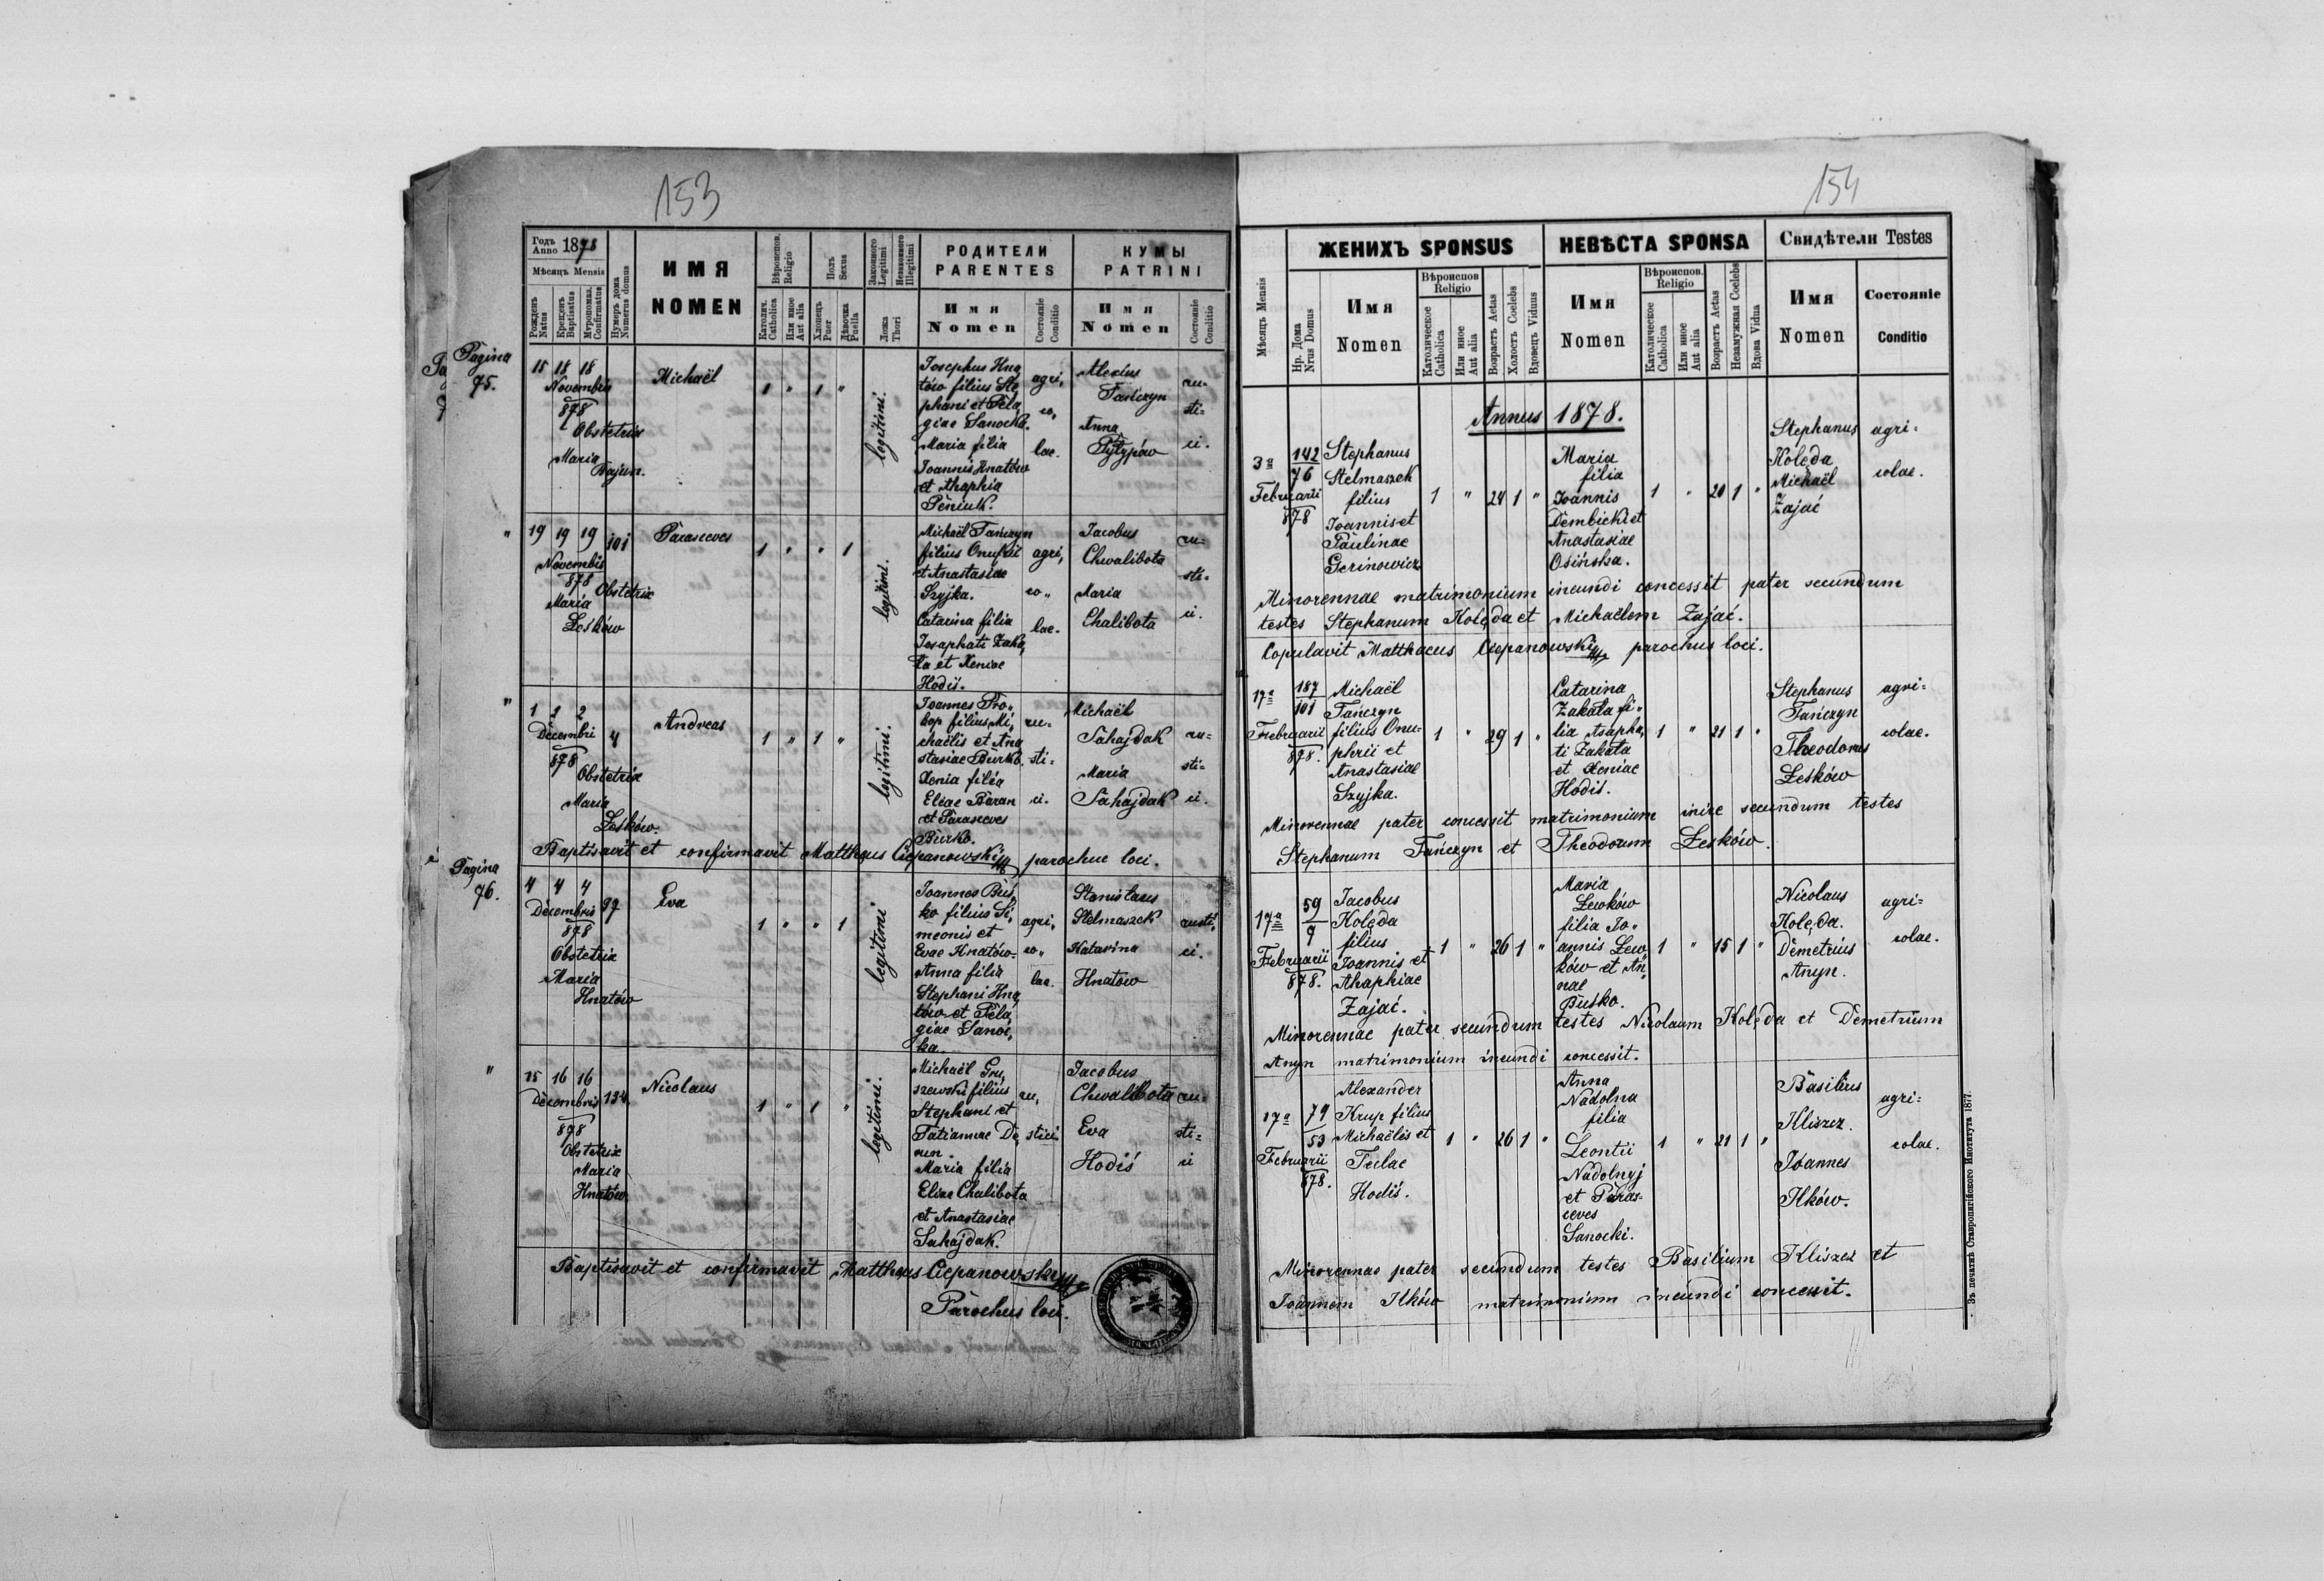 153
Годъ Anno 1878
Мѣсяцъ Mensis
Рожденъ Natus
Крещенъ Baptisatus
Мѵропомаз. Confirmatus
Нумеръ дома Numerus domus
ИМЯ
NOMEN
Вѣроиспов. Religio
Католич. Catholica
Или иное Aut alia
Полъ Sexus
Хлопецъ Puer
Дѣвочка Puella
Законного Legitimi
Незаконного Illegitimi
Ложа Thori
РОДИТЕЛИ
PARENTES
Имя
Nomen
Состояніе Conditio
КУМЫ
PATRINI
Имя
Nomen
Состояніе Conditio
Pagina
75.
15 18 18
Novembris
878
Obstetrix
Maria
Bajun.
Michaël
1 " 1 "
legitimi.
Josephus Hna
tów filius Ste
phani et Pela
giae Sanocka.
Maria filia
Joannis Hnatów
et Ahaphia
Peniuk.
agri,
co,
lae.
Alexius
Tańczyn
Anna
Pylypów
ru-
sti=
ci.
" 19 19 19 101
Novembris
878
Obstetrix
Maria
Leśków
Parasceves
1 " " 1
legitimi.
Michaël Tańczyn
filius Onufrii
et Anastasiae
Szyjka.
Catarina filia
Josaphati Zaka,
ła et Xeniae
Hodiś.
agri,
co"
lae.
Jacobus
Chwalibota
Maria
Chalibota
ru-
sti=
ci.
" 1 2 2
Decembri 4
878
Obstetrix
Maria
Leśków.
Andreas
1 " 1 "
legitimi.
Joannes Pro"
kop filius Mi,
chaëlis et Ana
stasiae Burko.
Xenia filia
Eliae Baran
et Parasceves
Burko.
ru=
sti=
ci.
Michaël
Sahajdak
Maria
Sahajdak
ru=
sti=
ci.
Baptisavit et confirmavit Mattheus Ciepanowski parochus loci.
Pagina
76.
4 4 4
Decembris 97
878
Obstetrix
Maria
Hnatów
Eva
1 " " 1
legitimi
Joannes Buś,
ko filius Si,
meonis et
Evae Hnatów=
Anna filia
Stephani Hna
tów et Pela,
giae Sanoc,
ka.
agri,
co"
lae.
Stanislaus
Stelmaszek
Katarina
Hnatów
rusti,
ci.
" 15 16 16
Decembris 134
878
Obstetrix
Maria
Hnatów
Nicolaus
1 " 1 "
legitimi.
Michaël Gru,
szewski filius
Stephani et
Tatiannae De
run.
Maria filia
Eliae Chalibota
et Anastasiae
Sahajdak.
ru,
stici
Jacobus
Chwalibota
Eva
Hodiś
ru=
sti=
ci
Baptisavit et confirmavit Mattheus Ciepanowski
Parochus loci.
154
Мѣсяцъ Mensis
Нр. Дома Nrus Domus
ЖЕНИХЪ SPONSUS
Имя
Nomen
Вѣроиспов Religio
Католическое Catholica
Или иное Aut alia
Возрастъ Aetas
Холостъ Coelebs
Вдовецъ Viduus
НЕВѢСТА SPONSA
Имя
Nomen
Вѣроиспов. Religio
Католическое Catholica
Или иное Aut alia
Возрастъ Aetas
Незамужная Coelebs
Вдова Vidua
Свидѣтели Testes
Имя
Nomen
Состояніе
Conditio
Annus 1878.
3a
Februarii
878
142
76
Stephanus
Stelmaszek
filius
Joannis et
Paulinae
Gerinowicz
1 " 24 1 "
Maria
filia
Joannis
Dembicki et
Anastasiae
Osińska.
1 " 20 1 "
Stephanus
Kolęda
Michaël
Zająć
agri=
colae.
Minorennae matrimonium ineundi concessit pater secundum
testes Stephanum Kolęda et Michaëlem Zająć.
Copulavit Matthaeus Ciepanowski parochus loci.
17a
Februarii
878.
187
101
Michaël
Tańczyn
filius Onu=
phrii et
Anastasiae
Szyjka.
1 " 29 1 "
Catarina
Zakała fi"
lia Asapha,
ti Zakała
et Xeniae
Hodiś.
1 " 21 1 "
Stephanus
Tańczyn
Theodorus
Leśków
agri=
colae.
Minorennae pater concessit matrimonium inire secundum testes
Stephanum Tańczyn et Theodorum Leśków.
17a
Februarii
878.
59
9
Jacobus
Kolęda
filius
Joannis et
Ahaphiae
Zająć.
1 " 26 1 "
Maria
Lewków
filia Jo"
annis Lew,
ków et An,
nae
Buśko.
1 " 15 1 "
Nicolaus
Kolęda.
Demetrius
Anyn.
agri=
colae.
Minorennae pater secundum testes Nicolaum Kolęda et Demetrium
Anyn matrimonium ineundi concessit.
17a
Februarii
878.
79
53
Alexander
Krup filius
Michaëlis et
Teclae
Hodiś.
1 " 26 1 "
Anna
Nadolna
filia
Leontii
Nadolnyj
et Paras=
ceves
Sanocki.
1 " 21 1 "
Basilius
Kliszcz.
Joannes
Ilków.
agri=
colae.
Minorennae pater secundum testes Basilium Kliszcz et
Joannem Ilków matrimonium ineundi concessit.
Зъ печатнѣ Ставропигійского Института 1877.